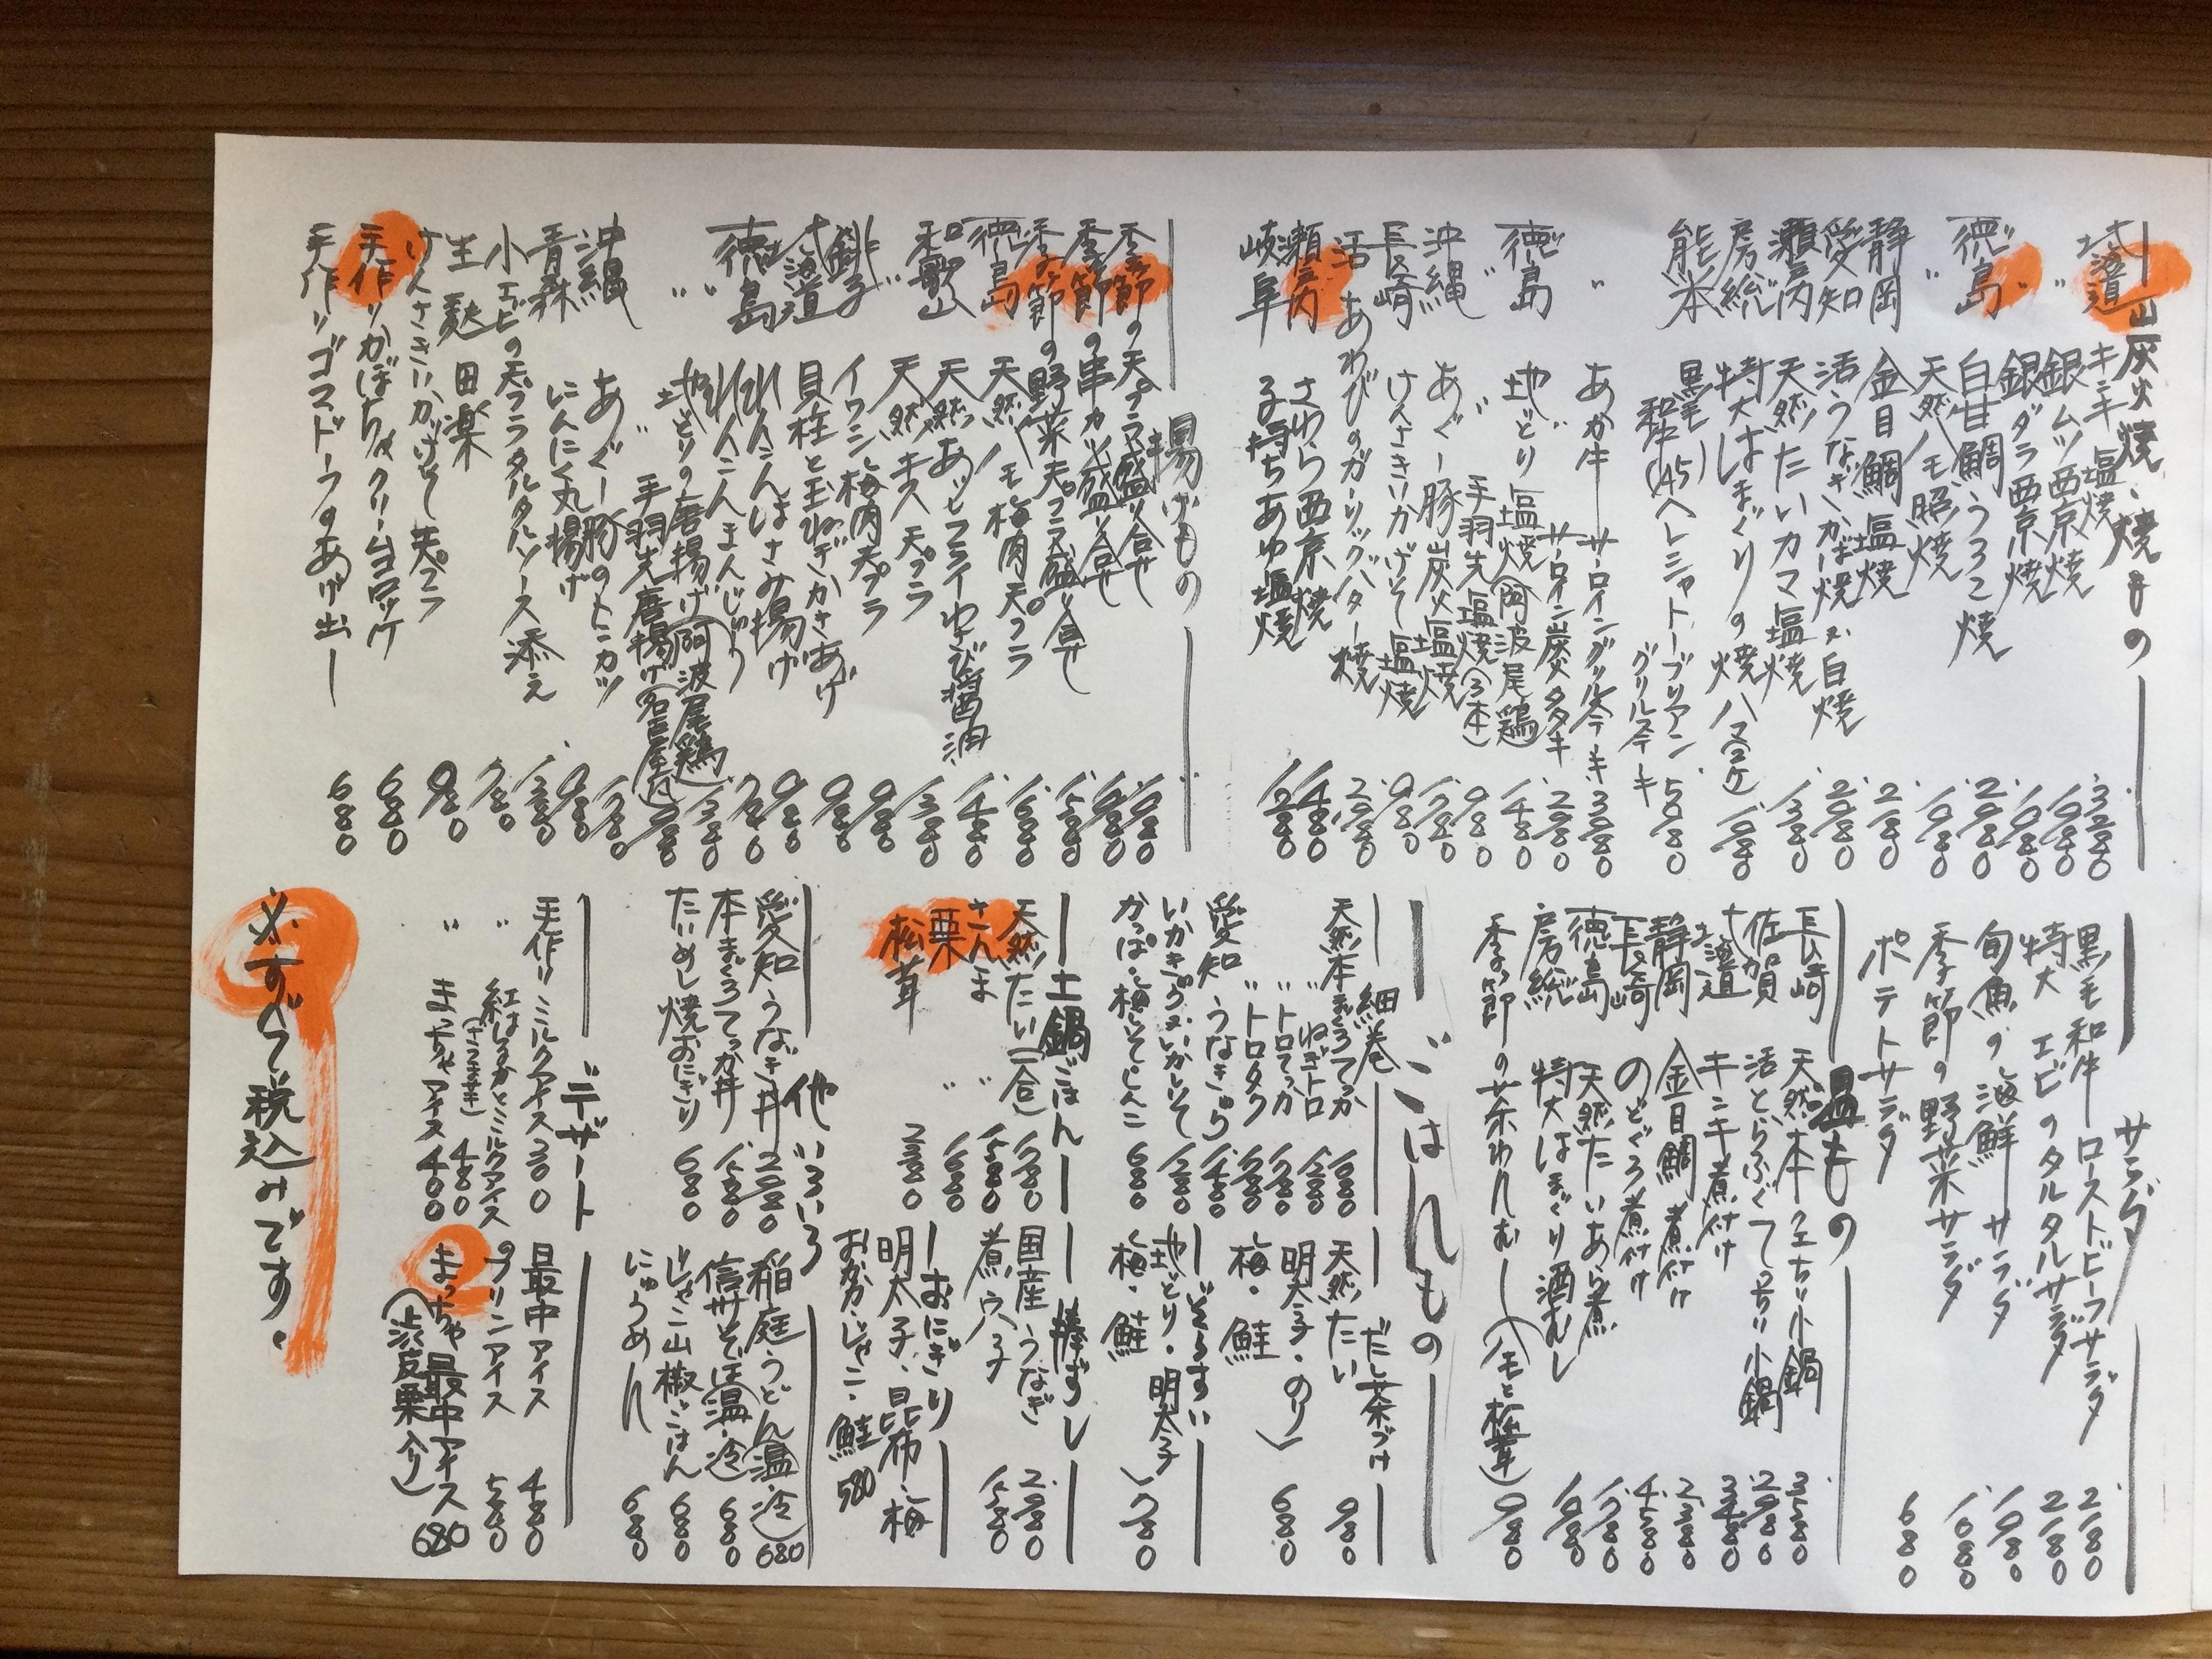 炭火焼、焼きもの
北海道 キンキ 塩焼 3280
〃 銀ムツ西京焼 1080
〃 銀ダラ西京焼 1080
徳島 白甘鯛うろこ焼 2980
〃 天然ハモ照焼 1980
静岡 金目鯛 塩焼 2180
愛知 活うなぎかば焼又白焼 2980
瀬戸内 天然たいカマ塩焼 1380
房総 特大はまぐりの焼ハマ(2ケ) 1080
熊本 黒毛和牛(A5)ヘレシャトーブリアングリルステーキ 5080
〃 あか牛 サーロイングリルステーキ 3080
サーロイン炭タタキ 2980
徳島 地どり塩焼(阿波尾鶏) 1480
〃 〃 手羽先塩焼(3本) 980
沖縄 あぐー豚炭火塩焼 1780
長崎 けんさきいかげそ塩焼 980
活あわびのガーリックバター焼 2980
瀬戸内 さわら西京焼 1480
岐阜 子持ちあゆ塩焼 1280
揚げもの
季節の天プラ盛り合せ 1980
季節の串カツ盛り合せ 1980
季節の野菜天プラ盛り合せ 1580
徳島 天然ハモ梅肉天プラ 1680
〃 天然あじフライわさび醤油 1480
和歌山 天然キス天プラ 1380
〃 イワシ梅肉天プラ 980
北海道 貝柱と玉ねぎかきあげ 980
徳島 れんこんはさみ揚げ 980
〃 れんこんまんじゅう 780
〃 地どりの唐揚げ(阿波尾鶏) 1380
〃 手羽先唐揚げ(名古屋式) 980
沖縄 あぐー豚のトンカツ 1780
青森 にんにく丸揚げ 980
小エビの天プラタルタルソース添え 1380
生麩田楽 780
けんさきいかげそ天プラ 980
手作りかぼちゃクリームコロッケ 680
手作りゴマドーフのあげ出し 680
サラダ
黒毛和牛ローストビーフサラダ 2180
特大エビのタルタルサラダ 2180
旬魚の海鮮サラダ 1980
季節の野菜サラダ 1680
ポテトサラダ 680
温もの
長崎 天然本クエちり小鍋 3580
佐賀 活とらふぐてっちり小鍋 2980
北海道 キンキ煮付け 3480
静岡 金目鯛煮付け 2380
長崎 のどぐろ煮付け 4580
徳島 天然たいあら煮 1780
房総 特大はまぐり酒むし 1080
季節の茶わんむし(ハモと松茸) 980
ごはんもの
細巻
天然本まぐろてっか 1680
〃 ねぎトロ 1280
〃 トロてっか 1780
〃 トロタク 1780
愛知 うなきゅう 1480
いかきゅう又いかしそ 1280
かっぱ・梅しそ・しんこ 680
だし茶づけ
天然たい 980
明太子・のり
梅・鮭 680
ぞうすい
地どり・明太子
梅・鮭 780
土鍋ごはん
天然たい(一合) 1780
さんま 〃 1580
栗 〃 1680
松茸 2380
棒ずし
国産うなぎ 2980
煮穴子 1580
おにぎり
明太子、昆布・梅
おかか・じゃこ・鮭 580
他いろいろ
愛知うなぎ丼 2980
本まぐろてっか丼 1580
たいめし焼おにぎり 680
稲庭うどん(温・冷) 680
信州そば(温・冷) 680
じゃこ山椒ごはん 680
にゅうめん 680
デザート
手作りミルクアイス 300
〃 紅はるかとミルクアイス(さつまいも) 480
〃 まっちゃアイス 400
最中アイス 480
プリンアイス 580
まっちゃ最中アイス(渋皮栗入り) 680
※すべて税込みです。